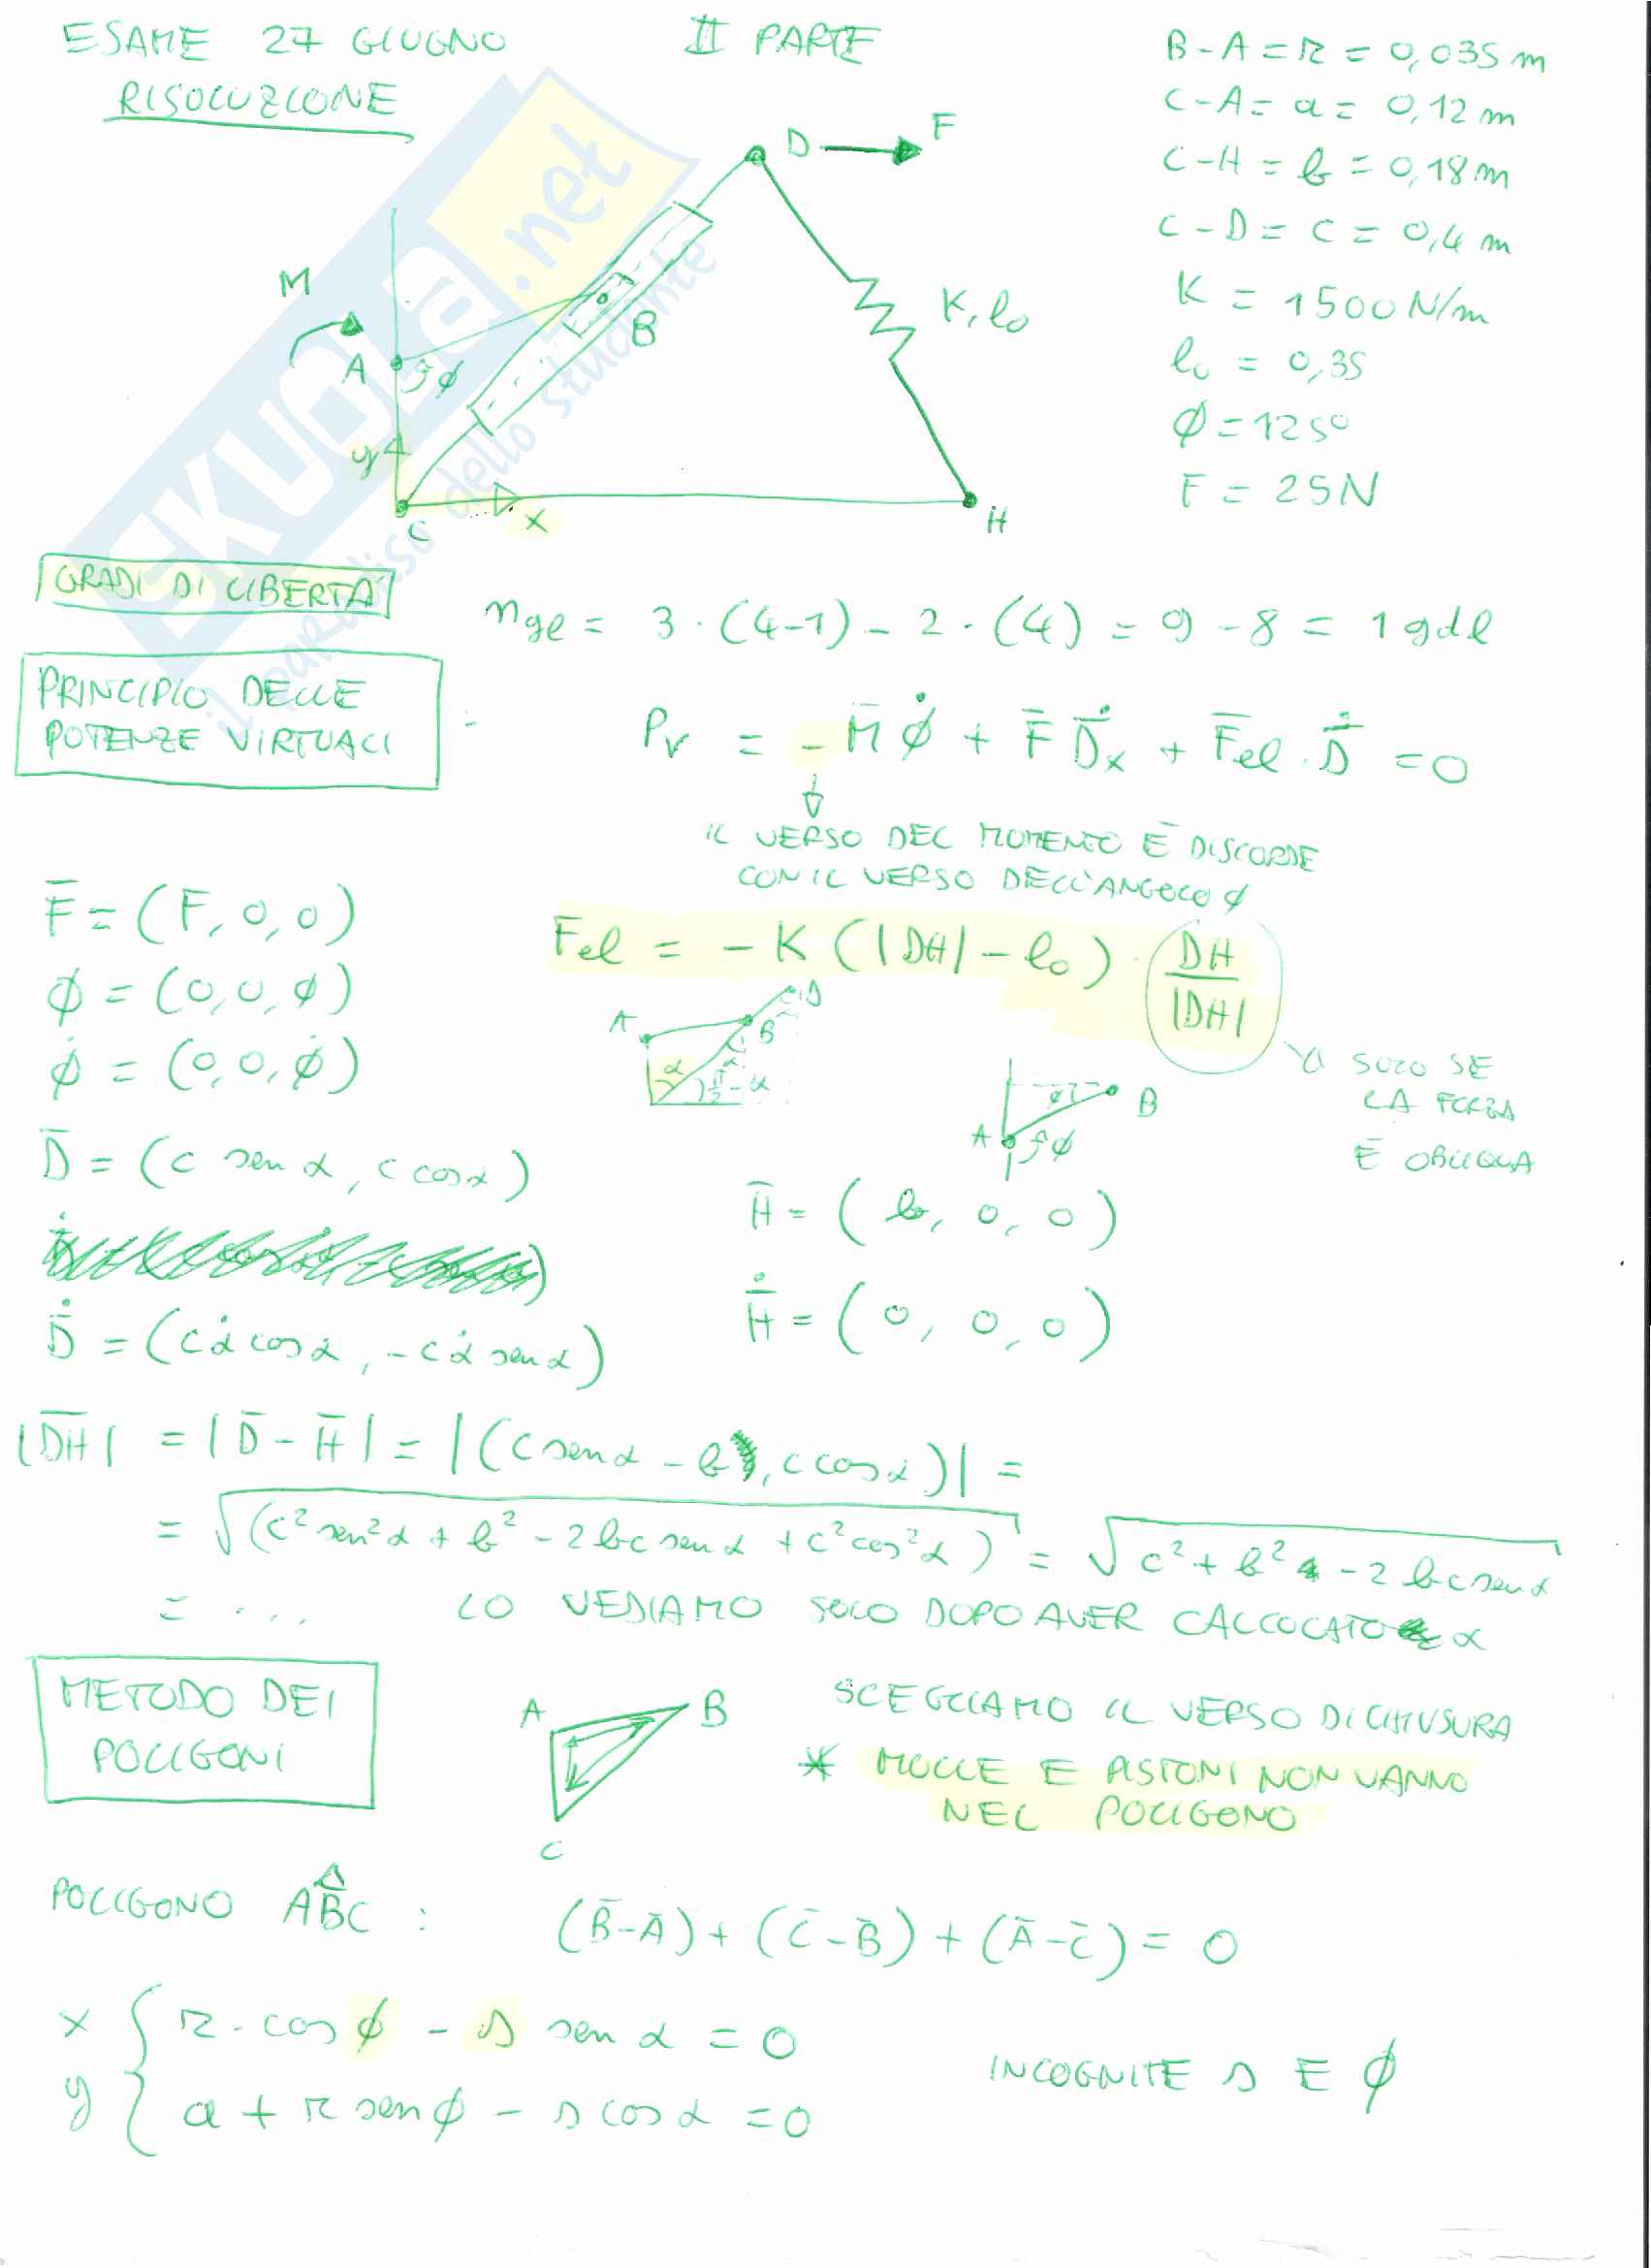 ESAME 27 GIUGNO II PARTE
RISOLUZIONE
B-A = r = 0,035 m
C-A = a = 0,12 m
C-H = b = 0,18 m
C-D = C = 0,4 m
K = 1500 N/m
l₀ = 0,35
ϕ = 125°
F = 25N
D F
M
A ϕ B K, l₀
y
C x H
SKUOLA.net
il paradiso dello studente
GRADI DI LIBERTÀ
n gl = 3 · (4-1) - 2 · (4) = 9 - 8 = 1 gdl
PRINCIPIO DELLE
POTENZE VIRTUALI
Pv = - M̄ ϕ̇ + F̄ Ḋx + F̄el · Ḋ = 0
IL VERSO DEL MOMENTO È DISCORDE
CON IL VERSO DELL'ANGOLO ϕ
F̄ = (F, 0, 0)
Fel = - K (|DH| - l₀) · DH / |DH|
ϕ = (0, 0, ϕ)
ϕ̇ = (0, 0, ϕ̇)
A D B α α π/2 - α
A ϕ B
SOLO SE
LA FORZA
È OBLIQUA
D̄ = (c sen α, c cos α)
H̄ = (b, 0, 0)
Ḋ = (c α̇ cos α, - c α̇ sen α)
Ḣ = (0, 0, 0)
|DH| = |D̄ - H̄| = |(c sen α - b, c cos α)| =
= √(c² sen² α + b² - 2bc sen α + c² cos² α) = √c² + b² - 2 bc sen α
= ... LO VEDIAMO SOLO DOPO AVER CALCOLATO α
METODO DEI
POLIGONI
A B C
SCEGLIAMO IL VERSO DI CHIUSURA
* MOLLE E PISTONI NON VANNO
NEL POLIGONO
POLIGONO ABC : (B̄-Ā) + (C̄-B̄) + (Ā-C̄) = 0
x { r · cos ϕ - s sen α = 0
INCOGNITE s E ϕ
y { a + r sen ϕ - s cos α = 0